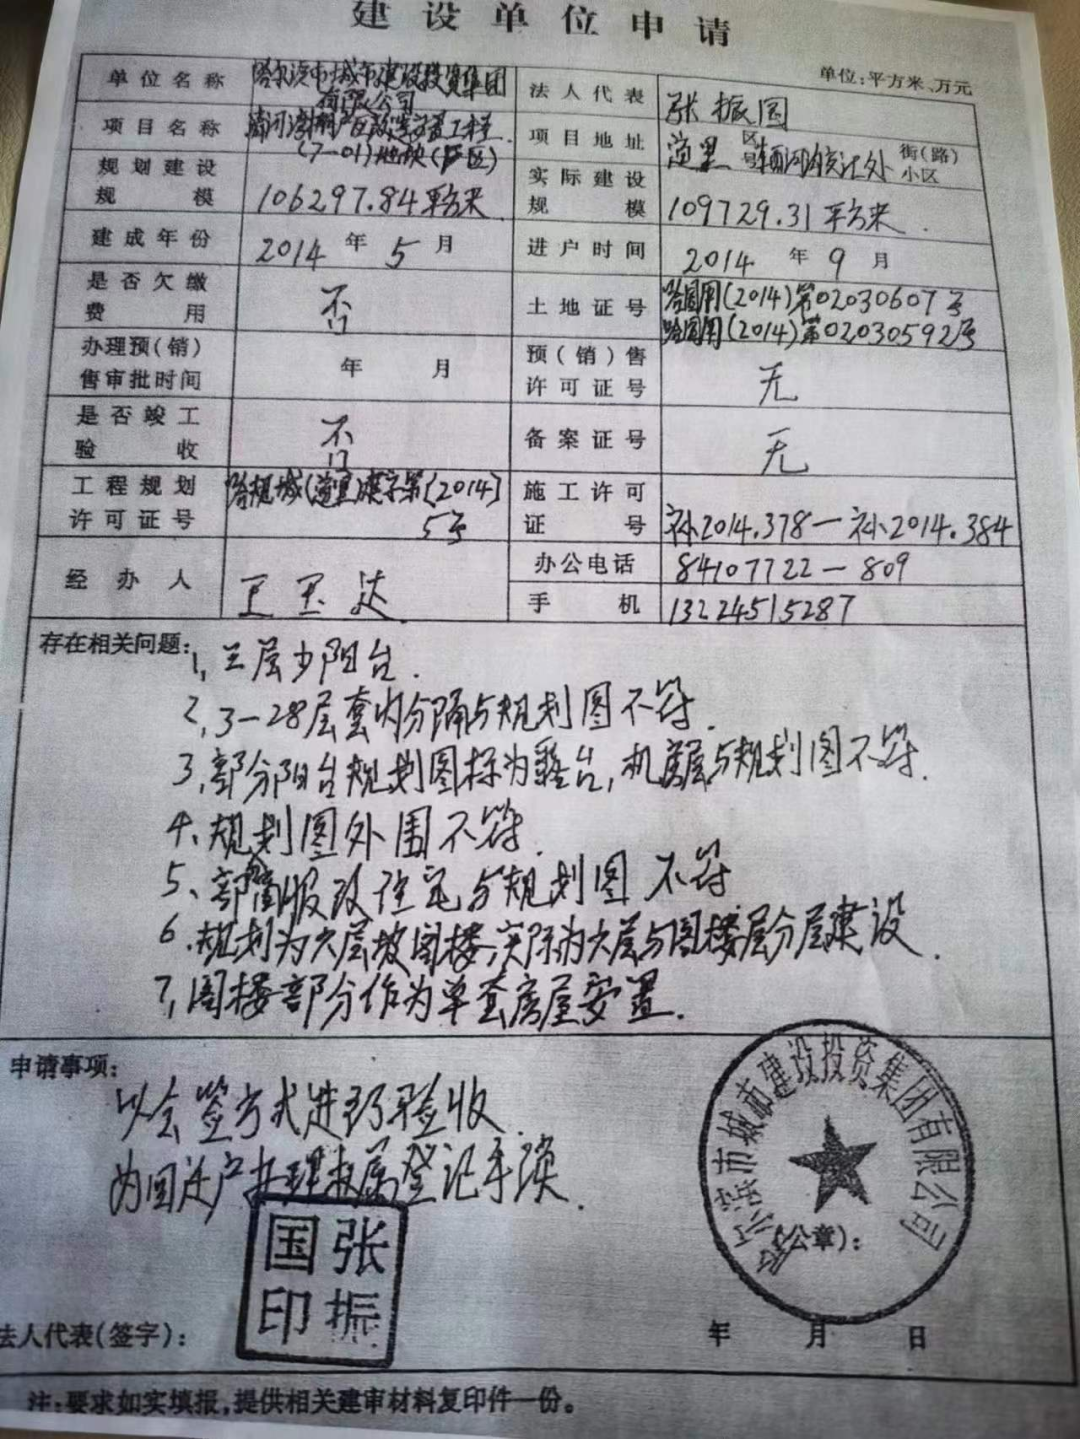 建设单位申请
单位:平方米、万元
单位名称 哈尔滨市城市建设投资集团有限公司 法人代表 张振国
项目名称 棚户区改造安置工程(7-01)地块(厂区) 项目地址 道里 区 号 辆河 街(路)小区
规划建设规模 106297.84平方米 实际建设规模 109729.31平方米.
建成年份 2014 年 5 月 进户时间 2014 年 9 月
是否欠缴费用 否 土地证号 哈国用(2014)第02030607号
哈国用(2014)第02030592号
办理预(销)售审批时间 年 月 预(销)售许可证号 无
是否竣工验收 否 备案证号 无
工程规划许可证号 哈规城(道里)建字第[2014]5号 施工许可证号 补2014.378—补2014.384
经办人 王玉达 办公电话 84107722-809
手机 13224515287
存在相关问题:
1,三层少阳台.
2,3-28层套内分隔与规划图不符.
3,部分阳台规划图标为露台,机房层与规划图不符.
4、规划图外围不符.
5、部分商服改住宅与规划图不符
6.规划为六层坡阁楼,实际为六层与阁楼层分层建设.
7,阁楼部分作为单套房屋安置.
申请事项:
以会签方式进行验收
为回迁户办理权属登记手续.
哈尔滨市城市建设投资集团有限公司
(公章):
张振国印
法人代表(签字):
年 月 日
注:要求如实填报,提供相关建审材料复印件一份。